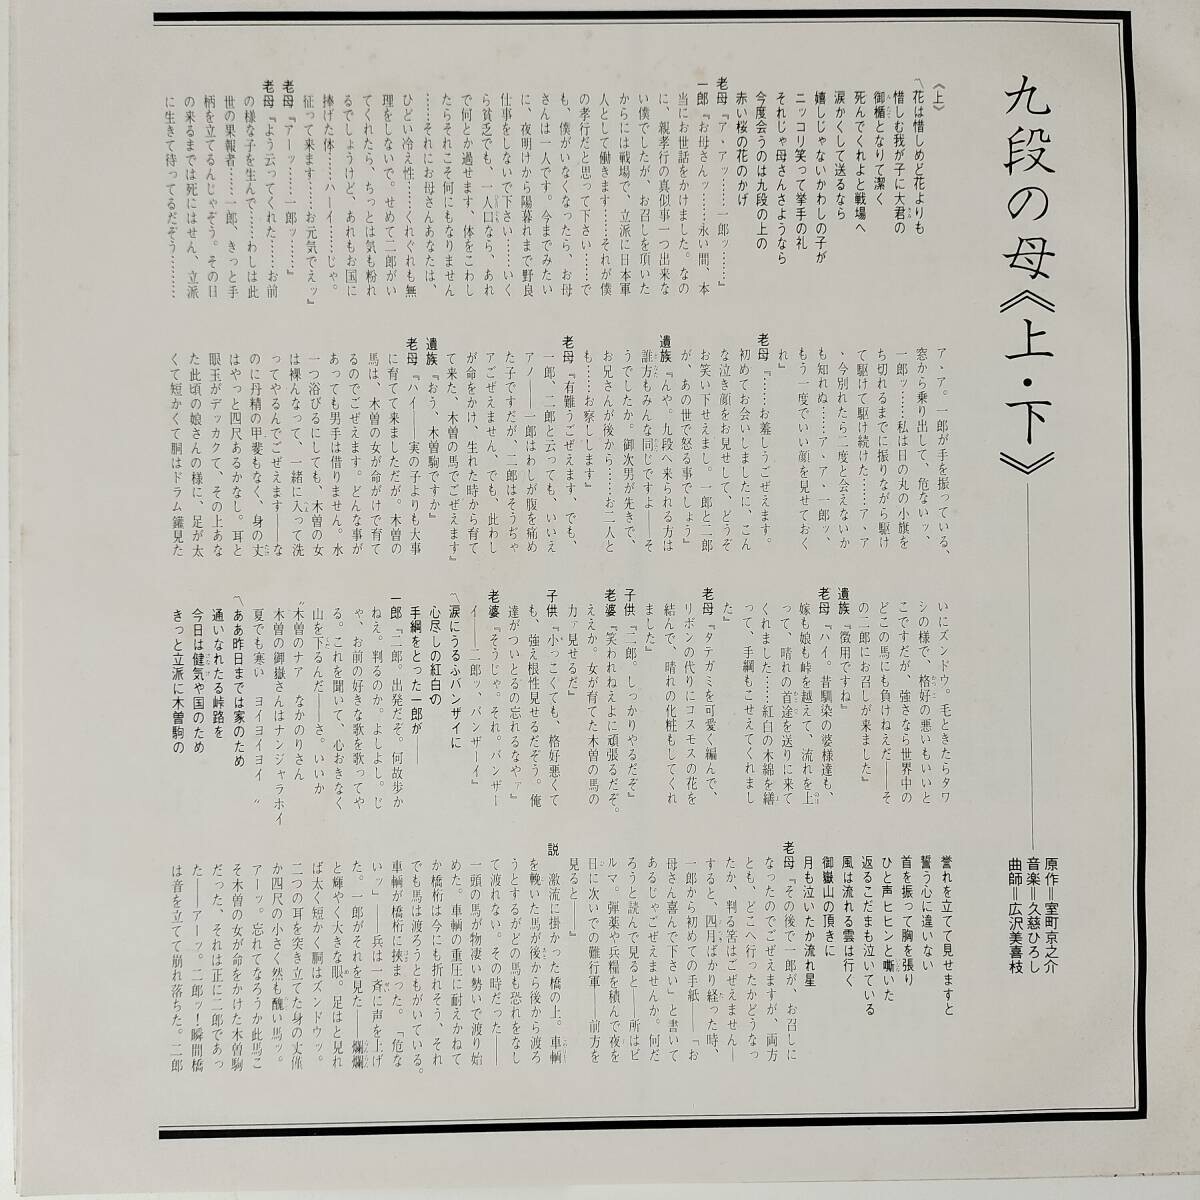 九段の母《上・下》
原作＝室町京之介
音楽＝久慈ひろし
曲師＝広沢美喜枝
《上》
〽花は惜しめど花よりも
惜しむ我が子に大君の
御楯となりて潔く
死んでくれよと戦場へ
涙かくして送るなら
嬉しじゃないかわしの子が
ニッコリ笑って挙手の礼
それじゃ母さんさようなら
今度会うのは九段の上の
赤い桜の花のかげ
老母『ア・アッ……一郎ッ……』
一郎『お母さんッ……永い間、本
当にお世話をかけました。なの
に、親孝行の真似事一つ出来な
い僕でしたが、お召しを頂いた
からには戦場で、立派に日本軍
人として働きます……それが僕
の孝行だと思って下さい……で
も、僕がいなくなったら、お母
さんは一人です。今までみたい
に、夜明けから陽暮れまで野良
仕事をしないで下さい……いく
ら貧乏でも、一人口なら、あれ
で何とか過せます、体をこわし
たらそれこそ何にもなりません
……それにお母さんあなたは、
ひどい冷え性……くれぐれも無
理をしないで。せめて二郎がい
てくれたら、ちっとは気も紛れ
るでしょうけど、あれもお国に
捧げた体……ハーイ……じゃ。
征って来ます……お元気でェッ』
老母『アーッ……一郎ッ……』
老母『よう云ってくれた……お前
の様な子を生んで……わしは此
世の果報者……一郎、きっと手
柄を立てるんじゃぞう。その日
の来るまでは死にはせん、立派
に生きて待ってるだぞう………
ア、ア。一郎が手を振っている、
窓から乗り出して、危ないッ、
一郎ッ……私は日の丸の小旗を
ち切れるまでに振りながら駆け
て駆けて駆け続けた……ア、ア
、今別れたら二度と会えないか
も知れぬ……ア、ア、一郎ッ、
もう一度でいい顔を見せておく
れ』
老母『……お羞しうござえます。
初めてお会いしましたに、こん
な泣き顔をお見せして、どうぞ
お笑い下せえまし。一郎と二郎
が、あの世で怒る事でしょう』
遺族『んや。九段へ来られる方は
誰方もみんな同じですよ――そ
うでしたか。御次男が先きで、
お兄さんが後から……お二人と
も……お察しします』
老母『有難うござえます、でも、
一郎、二郎と云っても、いいえ
アノ――一郎はわしが腹を痛め
た子ですだが、二郎はそうぢゃ
アござえません、でも、此わし
が命をかけ、生れた時から育て
て来た、木曽の馬でござえます』
遺族『おう、木曽駒ですか』
老母『ハイ――実の子よりも大事
に育てて来ましただが。木曽の
馬は、木曽の女が命がけで育て
るのでござえます。どんな事が
あっても男手は借りません。水
一つ浴びるにしても、木曽の女
は裸んなって、一緒に入って洗
ってやるんでござえます――な
のに丹精の甲斐もなく、身の丈
はやっと四尺あるかなし。耳と
眼玉がデッカクて、その上あな
た此頃の娘さんの様に、足が太
くて短かくて胴はドラム鑵見た
いにズンドウ。毛ときたらタワ
シの様で、格好の悪いもいいと
こですだが、強さなら世界中の
どこの馬にも負けねえだ――そ
の二郎にお召しが来ました』
遺族『徴用ですね』
老母『ハイ。昔馴染の婆様達も、
嫁も娘も峠を越えて、流れを上
って、晴れの首途を送りに来て
くれました……紅白の木綿を繕
って、手綱もこせえてくれまし
た』
老母『タテガミを可愛く編んで、
リボンの代りにコスモスの花を
結んで、晴れの化粧もしてくれ
ました』
子供『二郎。しっかりやるだぞ』
老婆『笑われねえよに頑張るだぞ。
ええか。女が育てた木曽の馬の
力ァ見せるだ』
子供『小っこくても、格好悪くて
も、強え根性見せるだぞう。俺
達がついとるの忘れるなやァ』
老婆『そうじゃ。それ。バンザー
イ――二郎ッ、バンザーイ』
〽涙にうるふバンザイに
心尽しの紅白の
手綱をとった一郎が――
一郎「二郎。出発だぞ。何故歩か
ねえ。判るのか。よしよし。じ
ゃ、お前の好きな歌を歌ってや
る。これを聞いて、心おきなく
山を下るんだ――さ。いいか
〝木曽のナア　なかのりさん
木曽の御嶽さんはナンジャラホイ
夏でも寒い　ヨイヨイヨイ　〟
〽ああ昨日までは家のため
通いなれたる峠路を
今日は健気や国のため
きっと立派に木曽駒の
誉れを立てて見せますと
誓う心に違いない
首を振って胸を張り
ひと声ヒヒンと嘶いた
返るこだまも泣いている
風は流れる雲は行く
御嶽山の頂きに
月も泣いたか流れ星
老母『その後で一郎が、お召しに
なったのでござえますが、両方
とも、どこへ行ったかどうなっ
たか、判る筈はござえません―
すると、四月ばかり経った時、
一郎から初めての手紙――「お
母さん喜んで下さい」と書いて
あるじゃござえませんか。何だ
ろうと読んで見ると――所はビ
ルマ。弾薬や兵糧を積んで夜を
日に次いでの難行軍――前方を
見ると――』
説　激流に掛かった橋の上。車輌
を輓いた馬が後から後から渡ろ
うとするがどの馬も恐れをなし
て渡れない。その時だった――
一頭の馬が物凄い勢いで渡り始
めた。車輌の重圧に耐えかねて
か橋桁は今にも折れそう、それ
でも馬は渡ろうともがいている。
車輌が橋桁に挟まった。「危な
いッ」――兵は一斉に声を上げ
た。一郎がそれを見た――爛爛
と輝やく大きな眼。足はと見れ
ば太く短かく胴はズンドウッ。
二つの耳を突き立てた身の丈僅
か四尺の小さく然も醜い馬ッ。
アーッ。忘れてなろうか此馬こ
そ木曽の女が命をかけた木曽駒
だった、それは正に二郎であっ
た――アーッ。二郎ッ！瞬間橋
は音を立てて崩れ落ちた。二郎